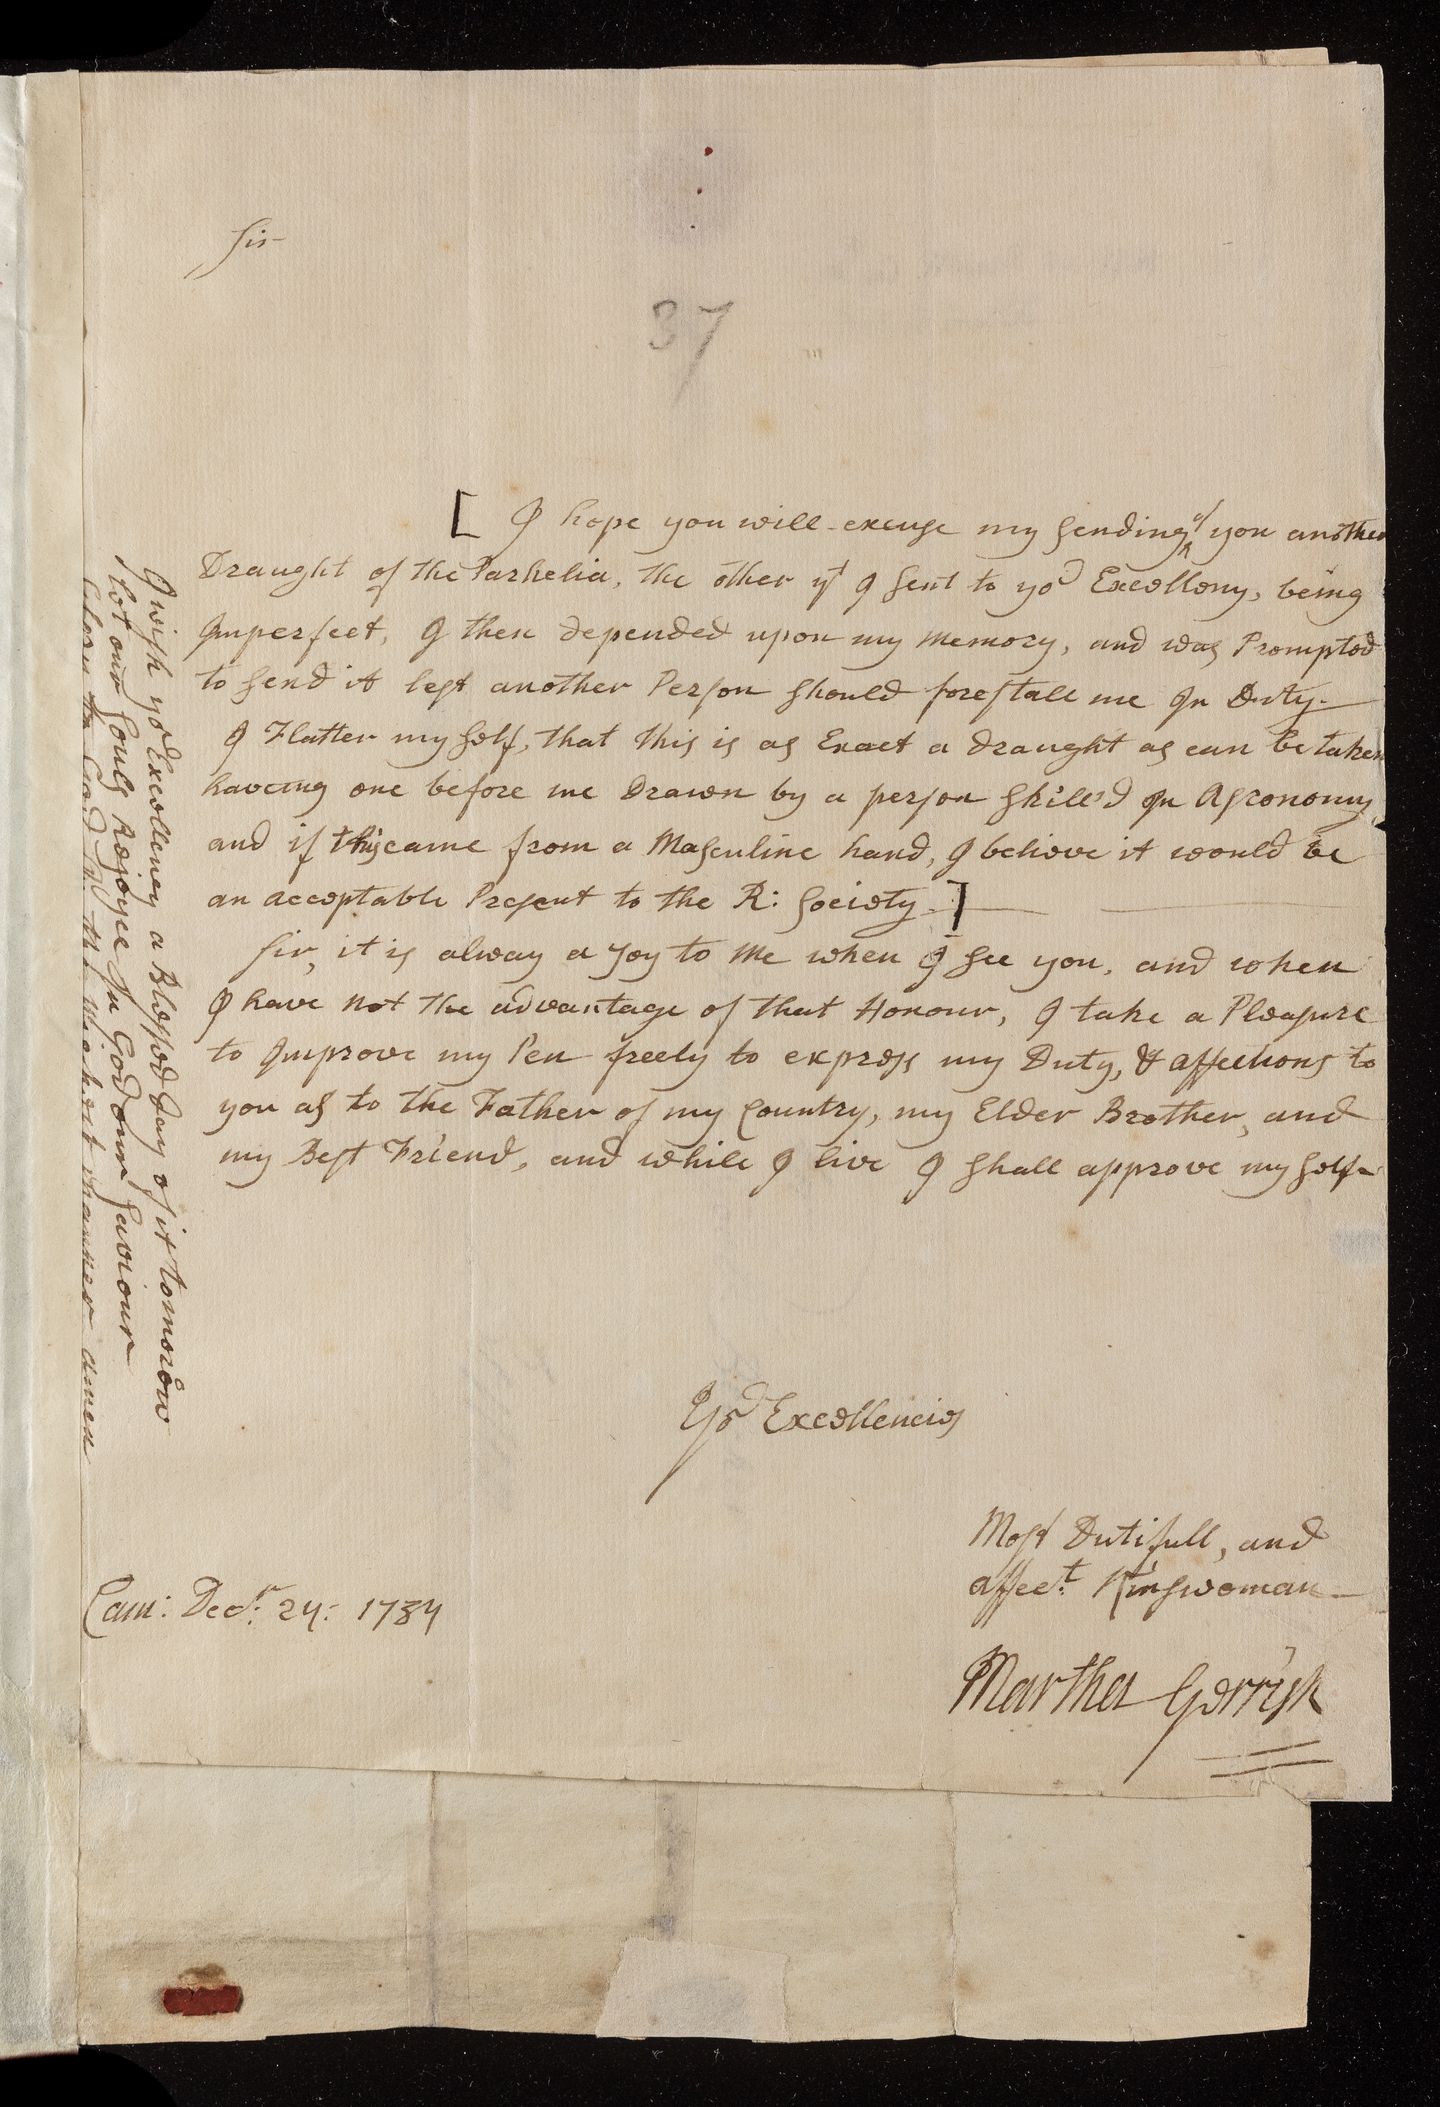 Sir
37
[ I hope you will excuse my sending of you another
Draught of the Parhelia, the other yt I sent to yor Excellony, being
Imperfect, I then depended upon my memory, and was Prompted
to send it lest another Person should forestall me In Duty.
I Flatter my self, that this is as Exact a draught as can be taken
haveing one before me Drawn by a person skill'd In Astronomy,
and if this came from a Masculine hand, I believe it would be
an acceptable Present to the R: Society. ]
Sir, it is alway a Joy to me when I see you, and when
I have not the advantage of that Honour, I take a Pleasure
to Improve my Pen freely to express my Duty, & affections to
you as to the Father of my Country, my Elder Brother, and
my Best Friend, and while I live I shall approve my self
Yor Excellencies
Most Dutifull, and
affect. Kinswoman
Martha Gerrish
Cam: Decr. 24: 1734
I wish yor Excellency a Blessed day of it tomorow
let our Souls Rejoyce In God our Saviour
Glory to God In the highest manner amen